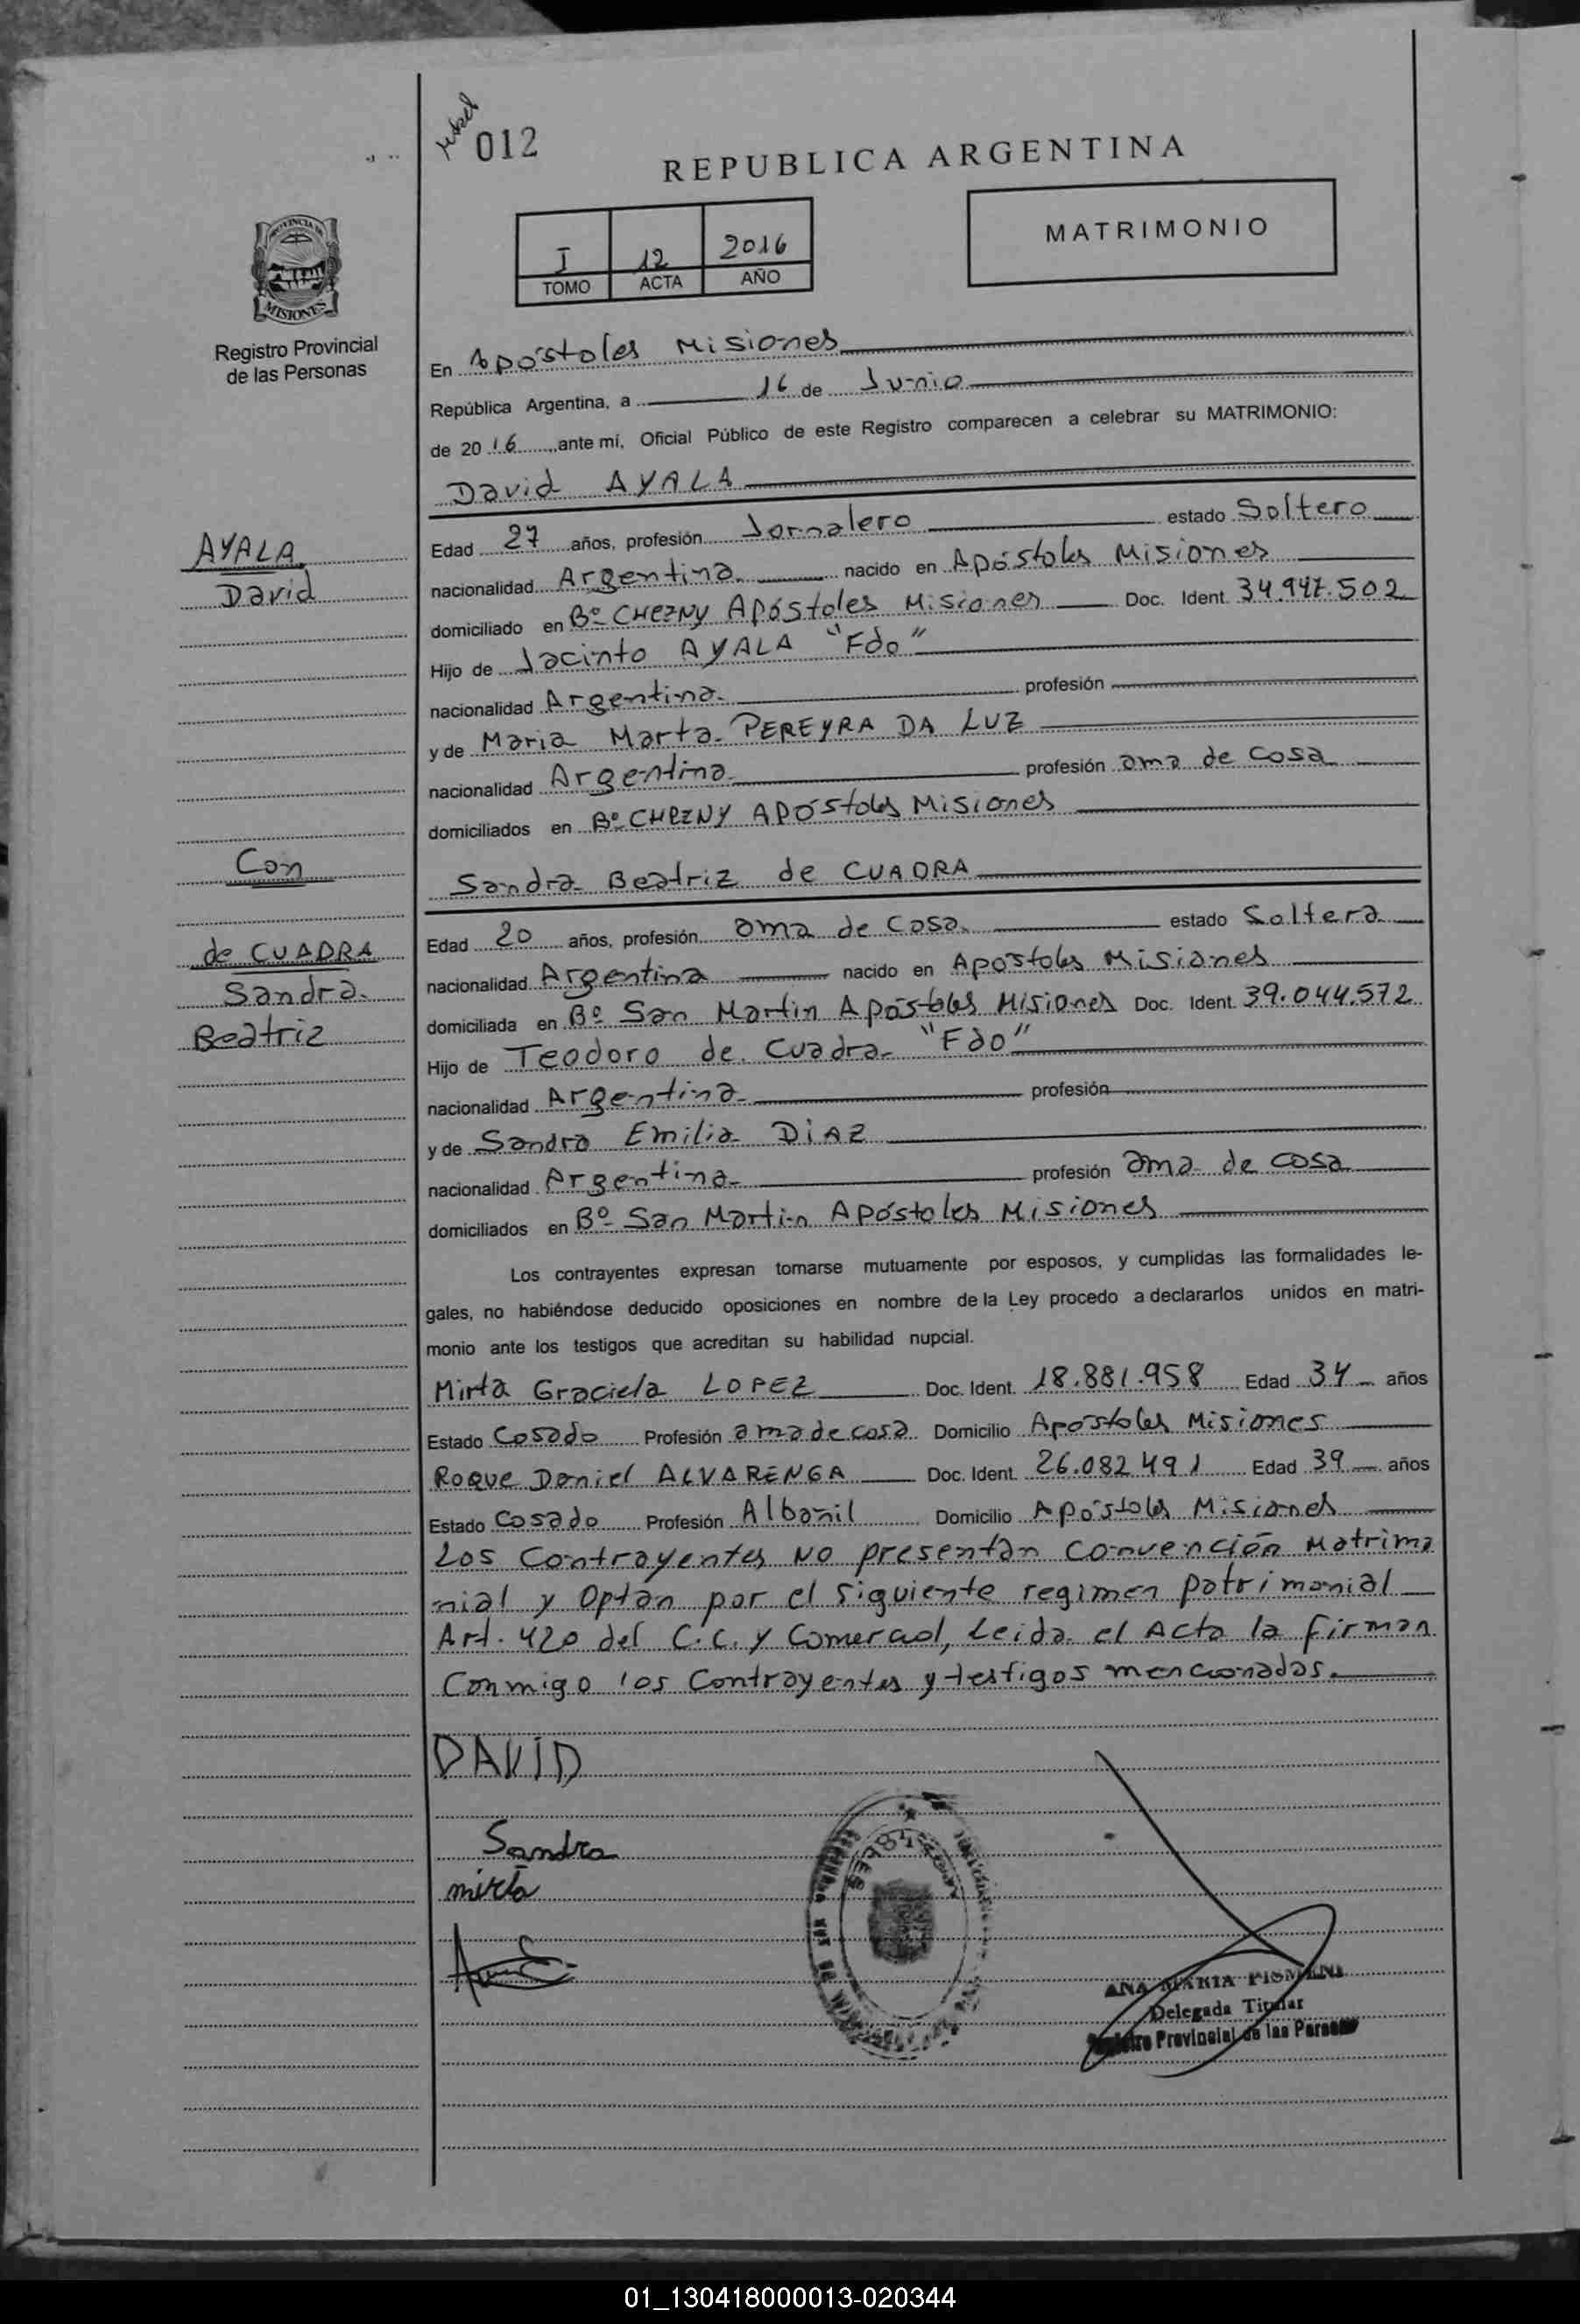 012
REPUBLICA ARGENTINA
I 12 2016
TOMO ACTA AÑO
MATRIMONIO
PROVINCIA DE
MISIONES
Registro Provincial
de las Personas
En Apóstoles Misiones
República Argentina, a 16 de Junio
de 2016, ante mí, Oficial Público de este Registro comparecen a celebrar su MATRIMONIO:
David AYALA
AYALA
David
Edad 27 años, profesión Jornalero estado Soltero
nacionalidad Argentina nacido en Apóstoles Misiones
domiciliado en Bº CHEZNY Apóstoles Misiones Doc. Ident. 34.947.502
Hijo de Jacinto AYALA "Fdo"
nacionalidad Argentina profesión
y de Maria Marta PEREYRA DA LUZ
nacionalidad Argentina profesión ama de casa
domiciliados en Bº CHEZNY Apóstoles Misiones
Con
Sandra Beatriz de CUADRA
de CUADRA
Sandra
Beatriz
Edad 20 años, profesión ama de casa estado Soltera
nacionalidad Argentina nacido en Apóstoles Misiones
domiciliada en Bº San Martin Apóstoles Misiones Doc. Ident. 39.044.572
Hijo de Teodoro de Cuadra "Fdo"
nacionalidad Argentina profesión
y de Sandra Emilia DiAZ
nacionalidad Argentina profesión ama de casa
domiciliados en Bº San Martin Apóstoles Misiones
Los contrayentes expresan tomarse mutuamente por esposos, y cumplidas las formalidades le-
gales, no habiéndose deducido oposiciones en nombre de la Ley procedo a declararlos unidos en matri-
monio ante los testigos que acreditan su habilidad nupcial.
Mirta Graciela LOPEZ Doc. Ident. 18.881.958 Edad 34 años
Estado Casado Profesión ama de casa Domicilio Apóstoles Misiones
Roque Daniel ALVARENGA Doc. Ident. 26.082.491 Edad 39 años
Estado Casado Profesión Albañil Domicilio Apóstoles Misiones
Los Contrayentes NO presentan convención Matrimo
nial y Optan por el siguiente regimen patrimonial
Art. 420 del C.C. y Comercial, Leida el Acta la firman
Conmigo los Contrayentes y testigos mencionados.
DAVID
Sandra
mirta
ANA MARIA PISMENI
Delegada Titular
Registro Provincial de las Personas
01_130418000013-020344